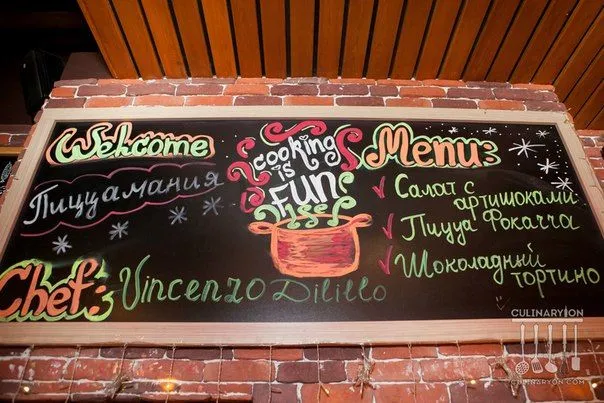 Welcome
Пиццамания
Chef: Vincenzo Dilillo
cooking
is
FUN
Menu:
Салат с
артишоками
Пицца Фокачча
Шоколадный
тортино
CULINARYON
CULINARYON.COM